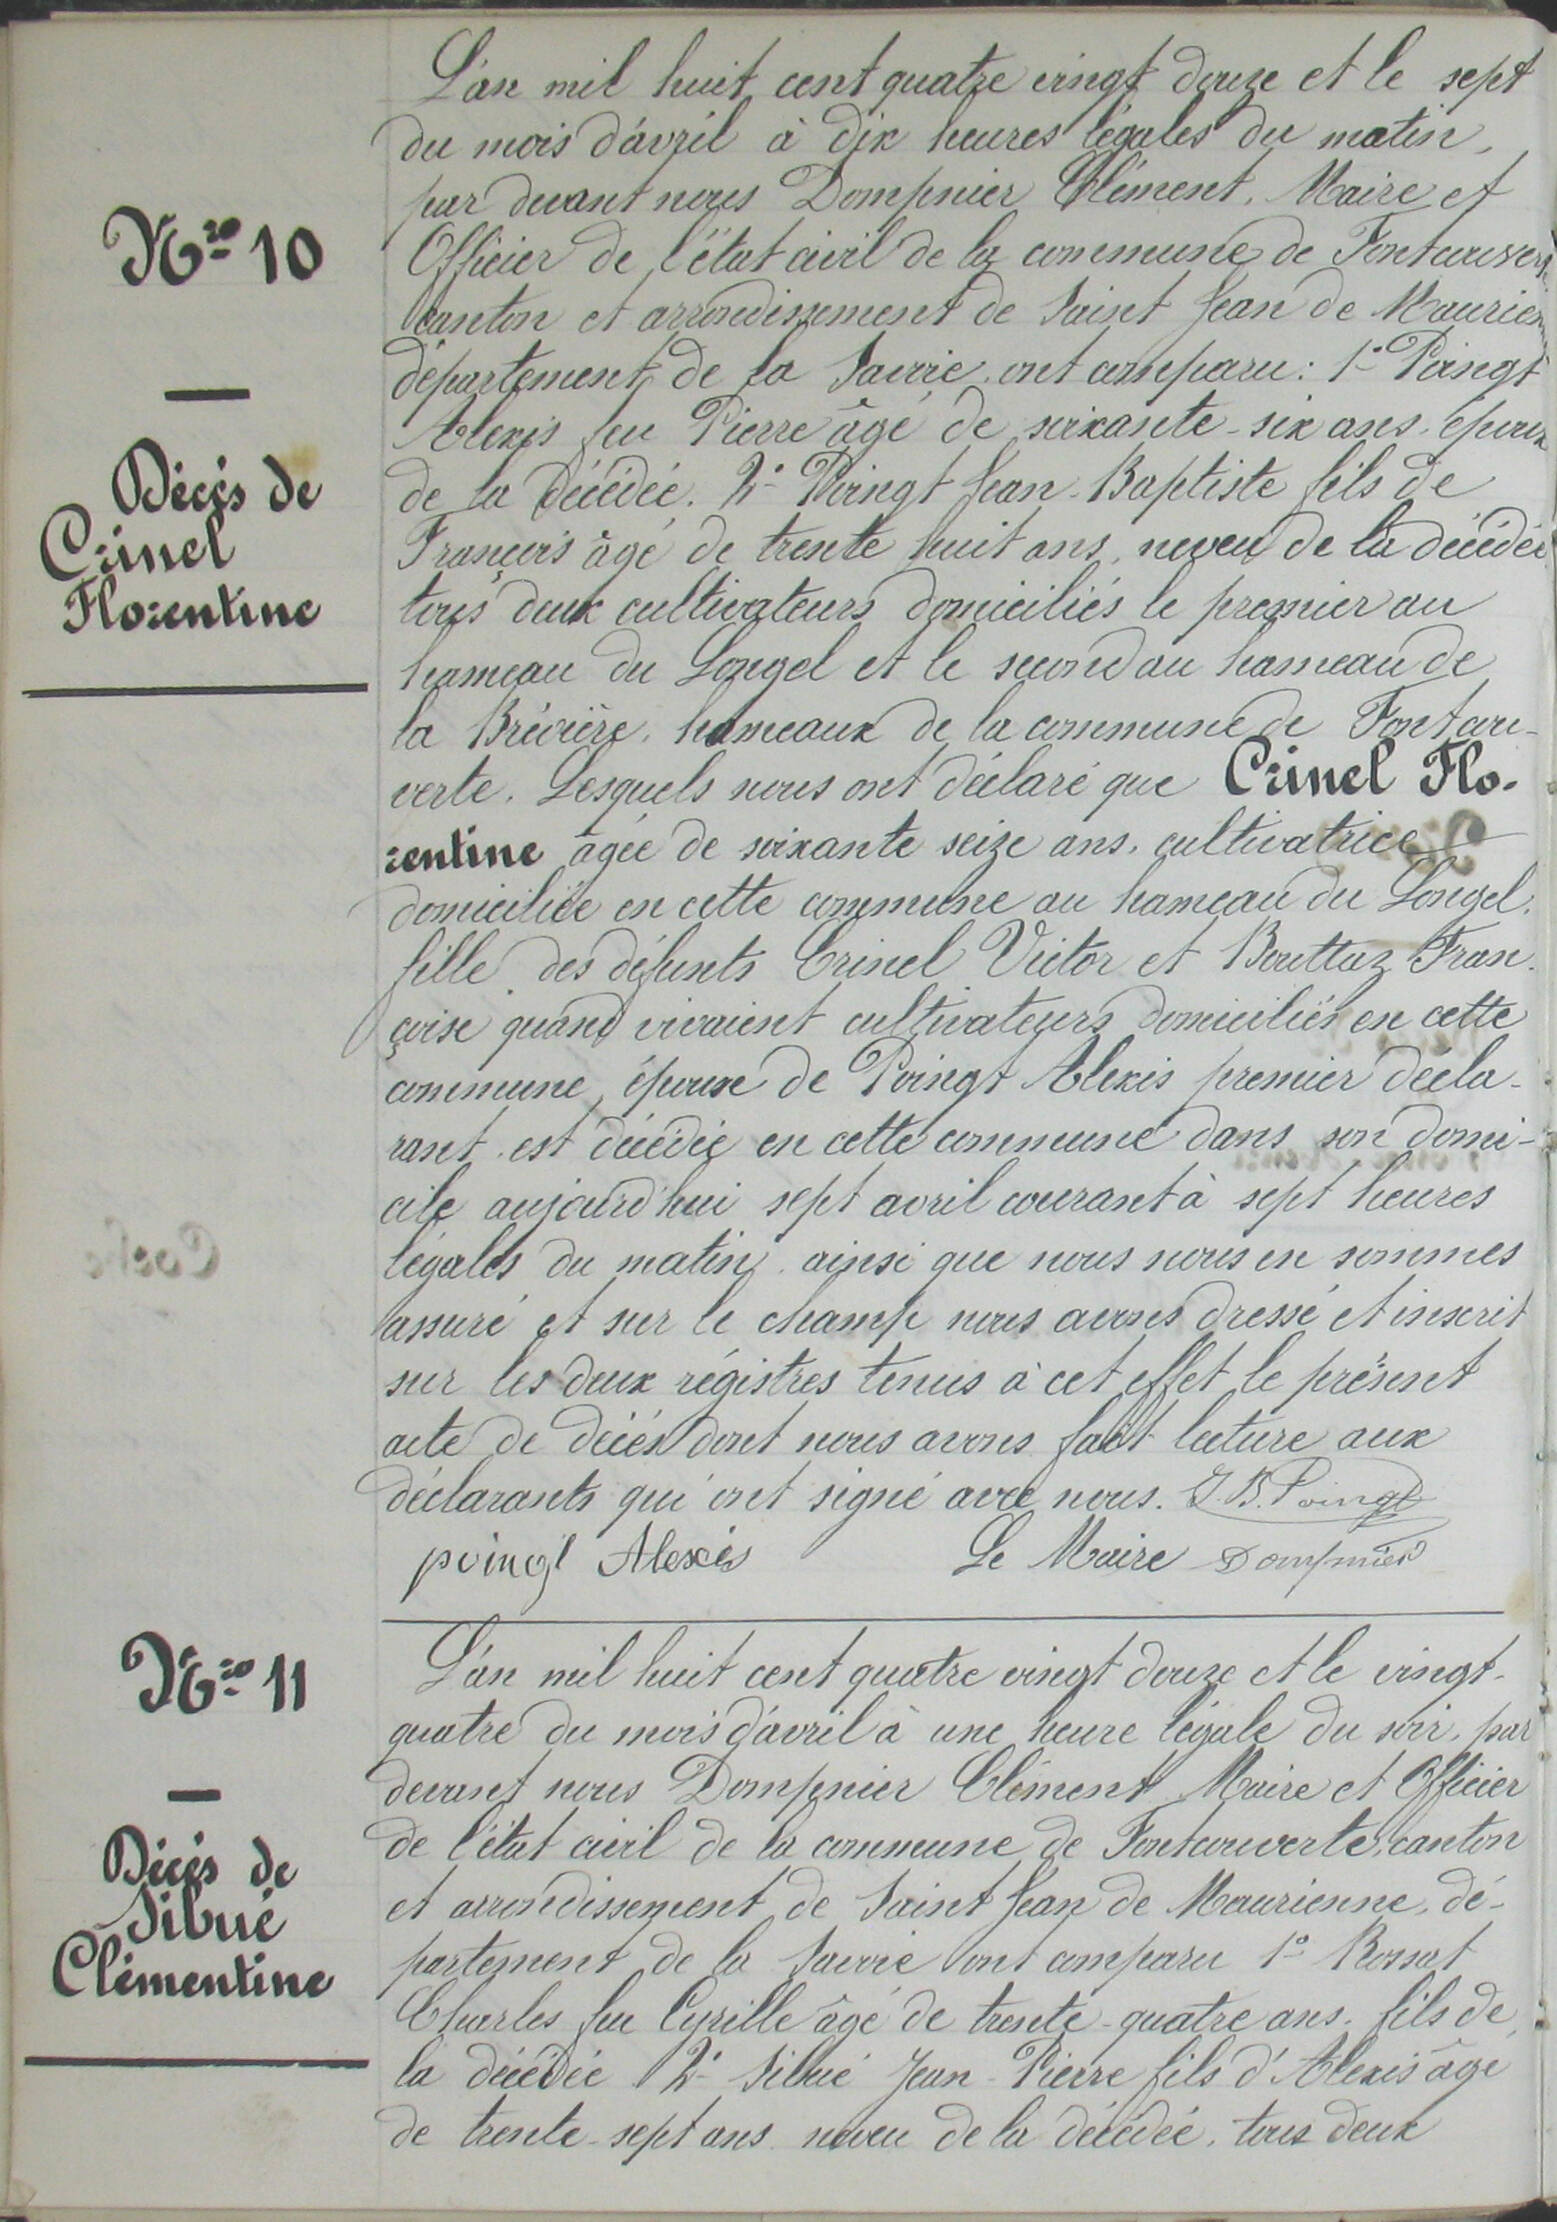 Nro 10
Décès de
Crinel
Florentine
L'an mil huit cent quatre vingt douze et le sept
du mois d'avril à dix heures légales du matin,
par devant nous Dompnier Clément, Maire et
Officier de l'état civil de la commune de Fontcouverte
canton et arrondissement de Saint Jean de Maurienne
département de la Savoie, ont comparu : 1° Poingt
Alexis feu Pierre âgé de soixante-six ans, époux
de la décédée. 2° Poingt Jean-Baptiste fils de
François âgé de trente huit ans, neveu de la décédée
tous deux cultivateurs domiciliés le premier au
hameau du Longel et le second au hameau de
la Brévière, hameaux de la commune de Fontcou-
verte. Lesquels nous ont déclaré que Crinel Flo-
rentine âgée de soixante seize ans, cultivatrice
domiciliée en cette commune au hameau du Longel,
fille des défunts Crinel Victor et Bouttaz Fran-
çoise quand vivaient cultivateurs domiciliés en cette
commune, épouse de Poingt Alexis premier décla-
rant, est décédée en cette commune dans son domi-
cile aujourd'hui sept avril courant à sept heures
légales du matin, ainsi que nous nous en sommes
assuré et sur le champ nous avons dressé et inscrit
sur les deux régistres tenus à cet effet le présent
acte de décès dont nous avons fait lecture aux
déclarants qui ont signé avec nous. J. B. Poingt
poingt Alexis Le Maire Dompnier
Nro 11
Décès de
Sibué
Clémentine
L'an mil huit cent quatre vingt douze et le vingt-
quatre du mois d'avril à une heure légale du soir, par
devant nous Dompnier Clément Maire et Officier
de l'état civil de la commune de Fontcouverte, canton
et arrondissement de Saint Jean de Maurienne, dé-
partement de la Savoie ont comparu 1° Rossat
Charles feu Cyrille âgé de trente-quatre ans, fils de
la décédée 2° Sibué Jean-Pierre fils d'Alexis âgé
de trente-sept ans neveu de la décédée, tous deux